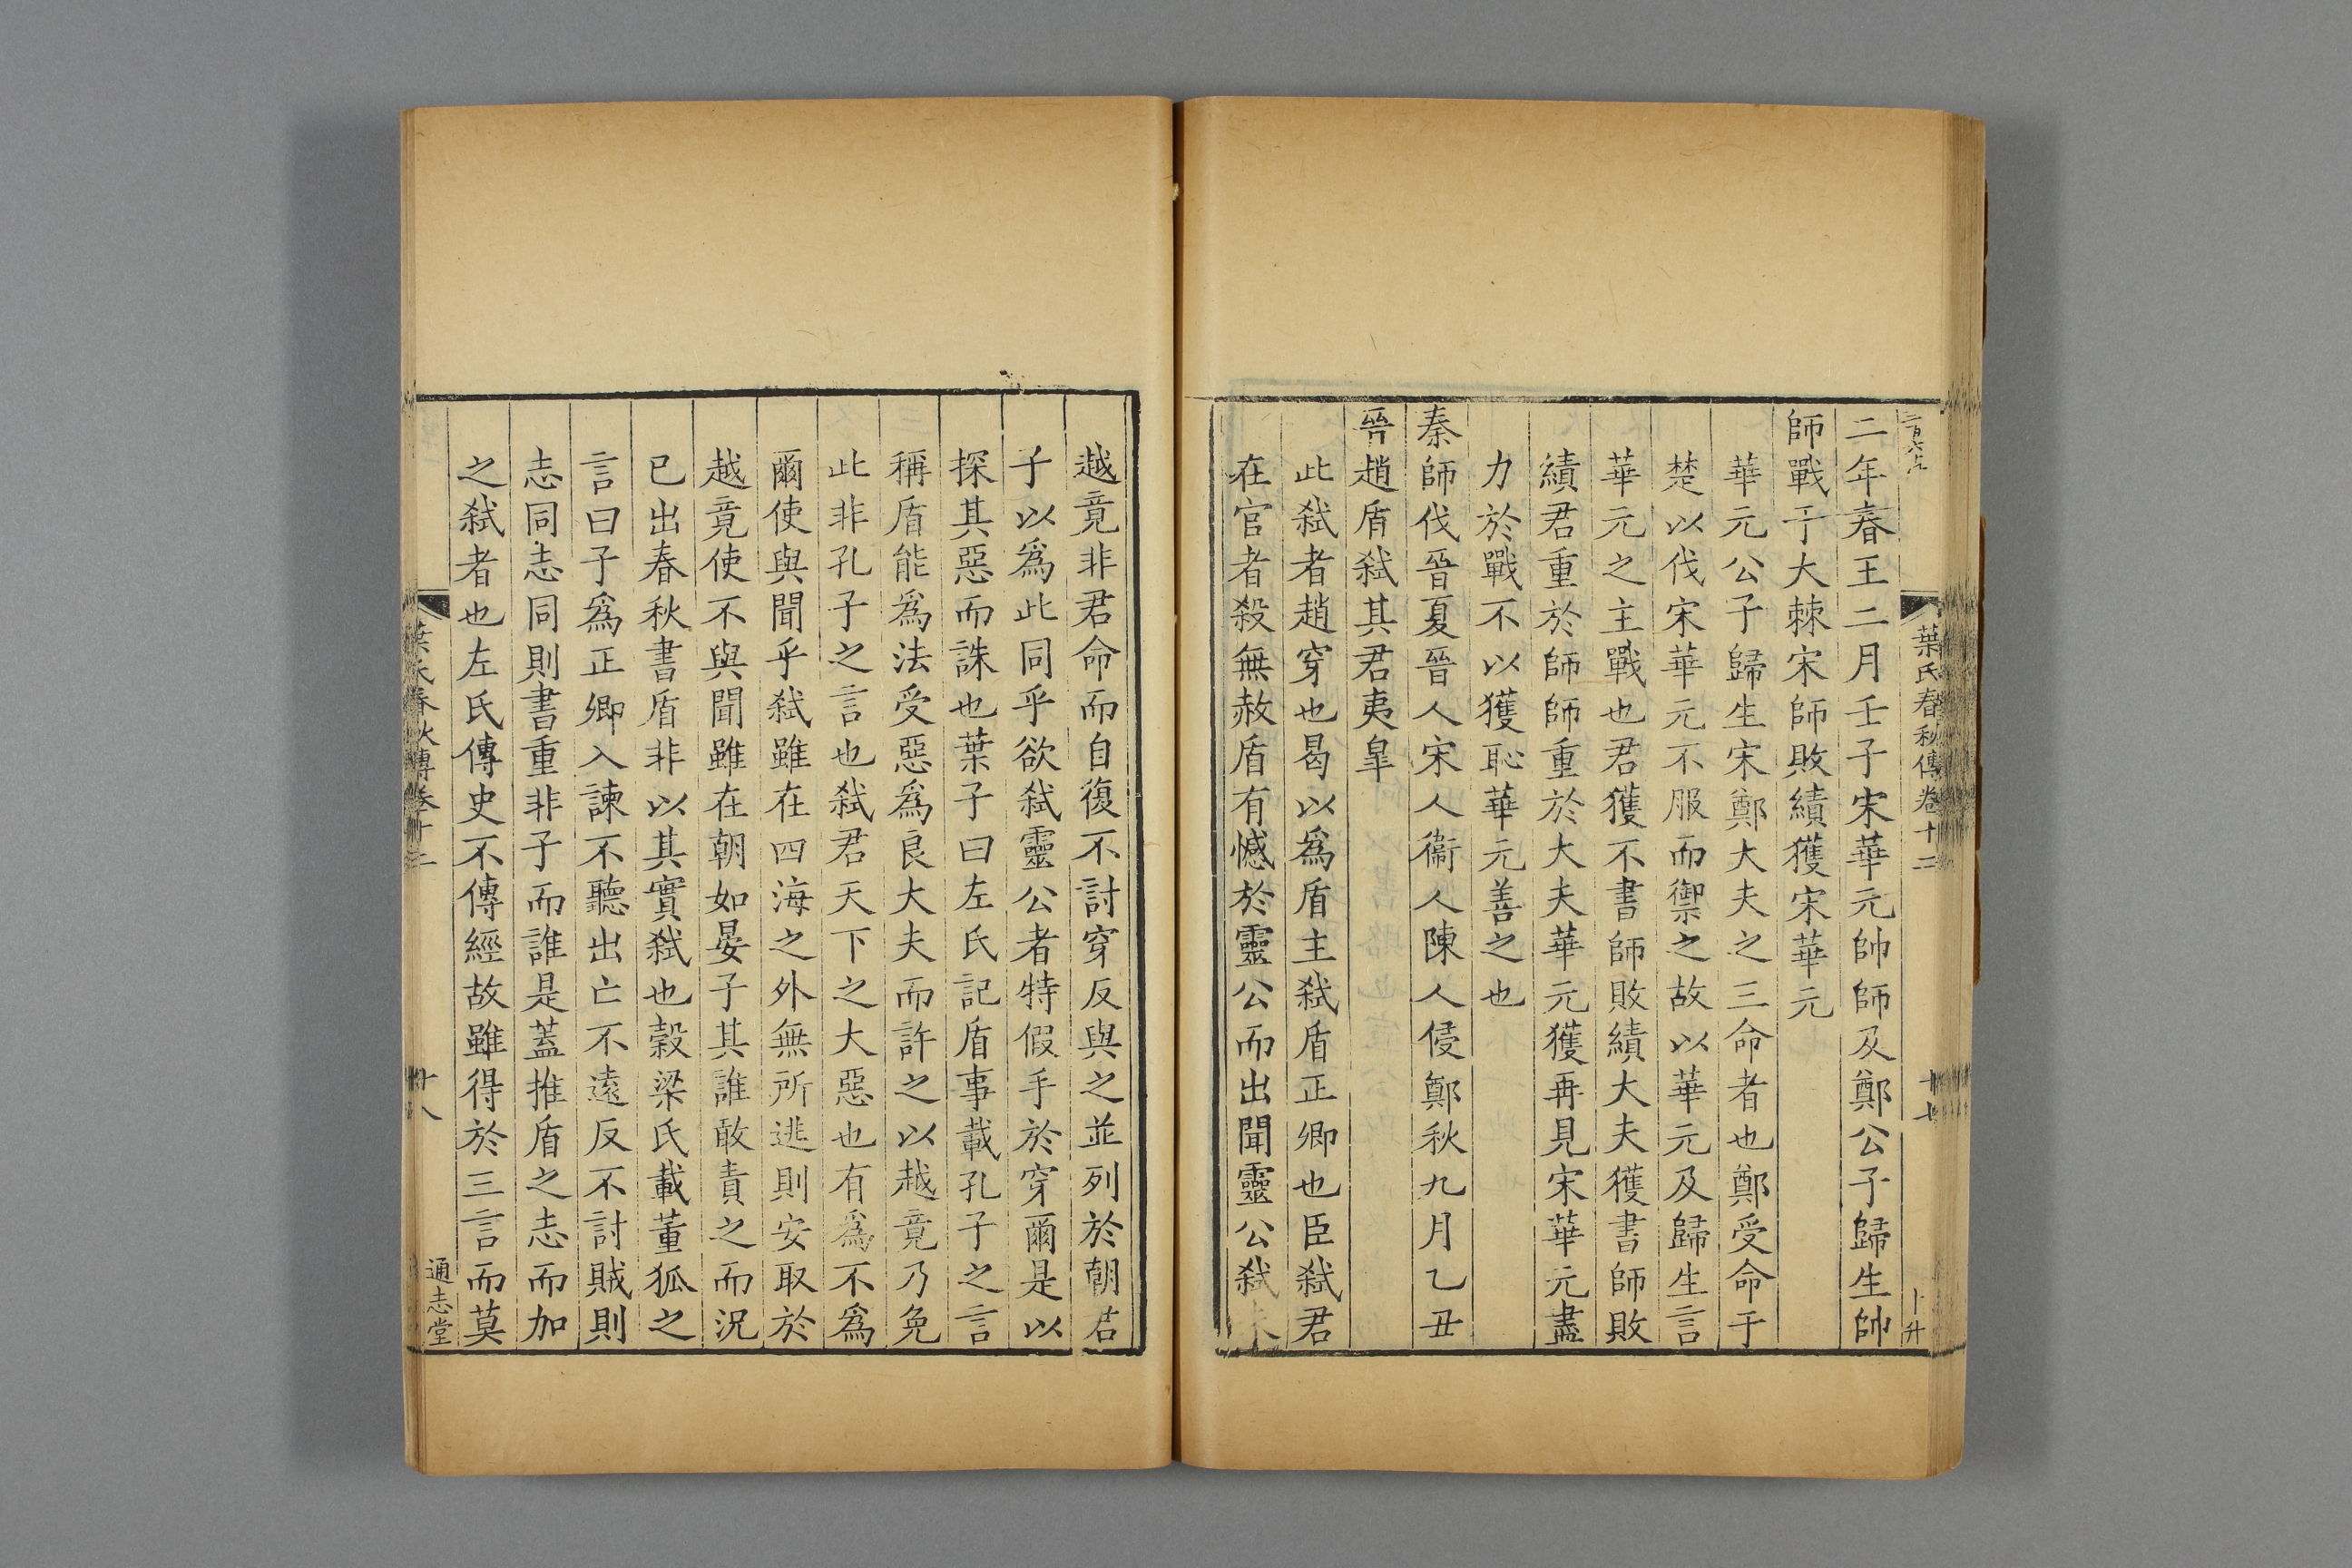 葉氏春秋傳卷十三
十七
二年春王二月壬子宋華元帥師及鄭公子歸生帥
師戰于大棘宋師敗績獲宋華元
華元公子歸生宋鄭大夫之三命者也鄭受命于
楚以伐宋華元不服而禦之故以華元及歸生言
華元之主戰也君獲不書師敗績大夫獲書師敗
績君重於師師重於大夫華元獲再見宋華元盡
力於戰不以獲恥華元善之也
秦師伐晉夏晉人宋人衞人陳人侵鄭秋九月乙丑
晉趙盾弑其君夷臯
此弑者趙穿也曷以爲盾主弑盾正卿也臣弑君
在官者殺無赦盾有憾於靈公而出聞靈公弑未
越竟非君命而自復不討穿反與之並列於朝君
子以爲此同乎欲弑靈公者特假手於穿爾是以
探其惡而誅也葉子曰左氏記盾事載孔子之言
稱盾能爲法受惡爲良大夫而許之以越竟乃免
此非孔子之言也弑君天下之大惡也有爲不爲
爾使與聞乎弑雖在四海之外無所逃則安取於
越竟使不與聞雖在朝如晏子其誰敢責之而況
已出春秋書盾非以其實弑也穀梁氏載董狐之
言曰子爲正卿入諫不聽出亡不遠反不討賊則
志同志同則書重非子而誰是蓋推盾之志而加
之弑者也左氏傳史不傳經故雖得於三言而莫
葉氏春秋傳卷十三
十八
通志堂